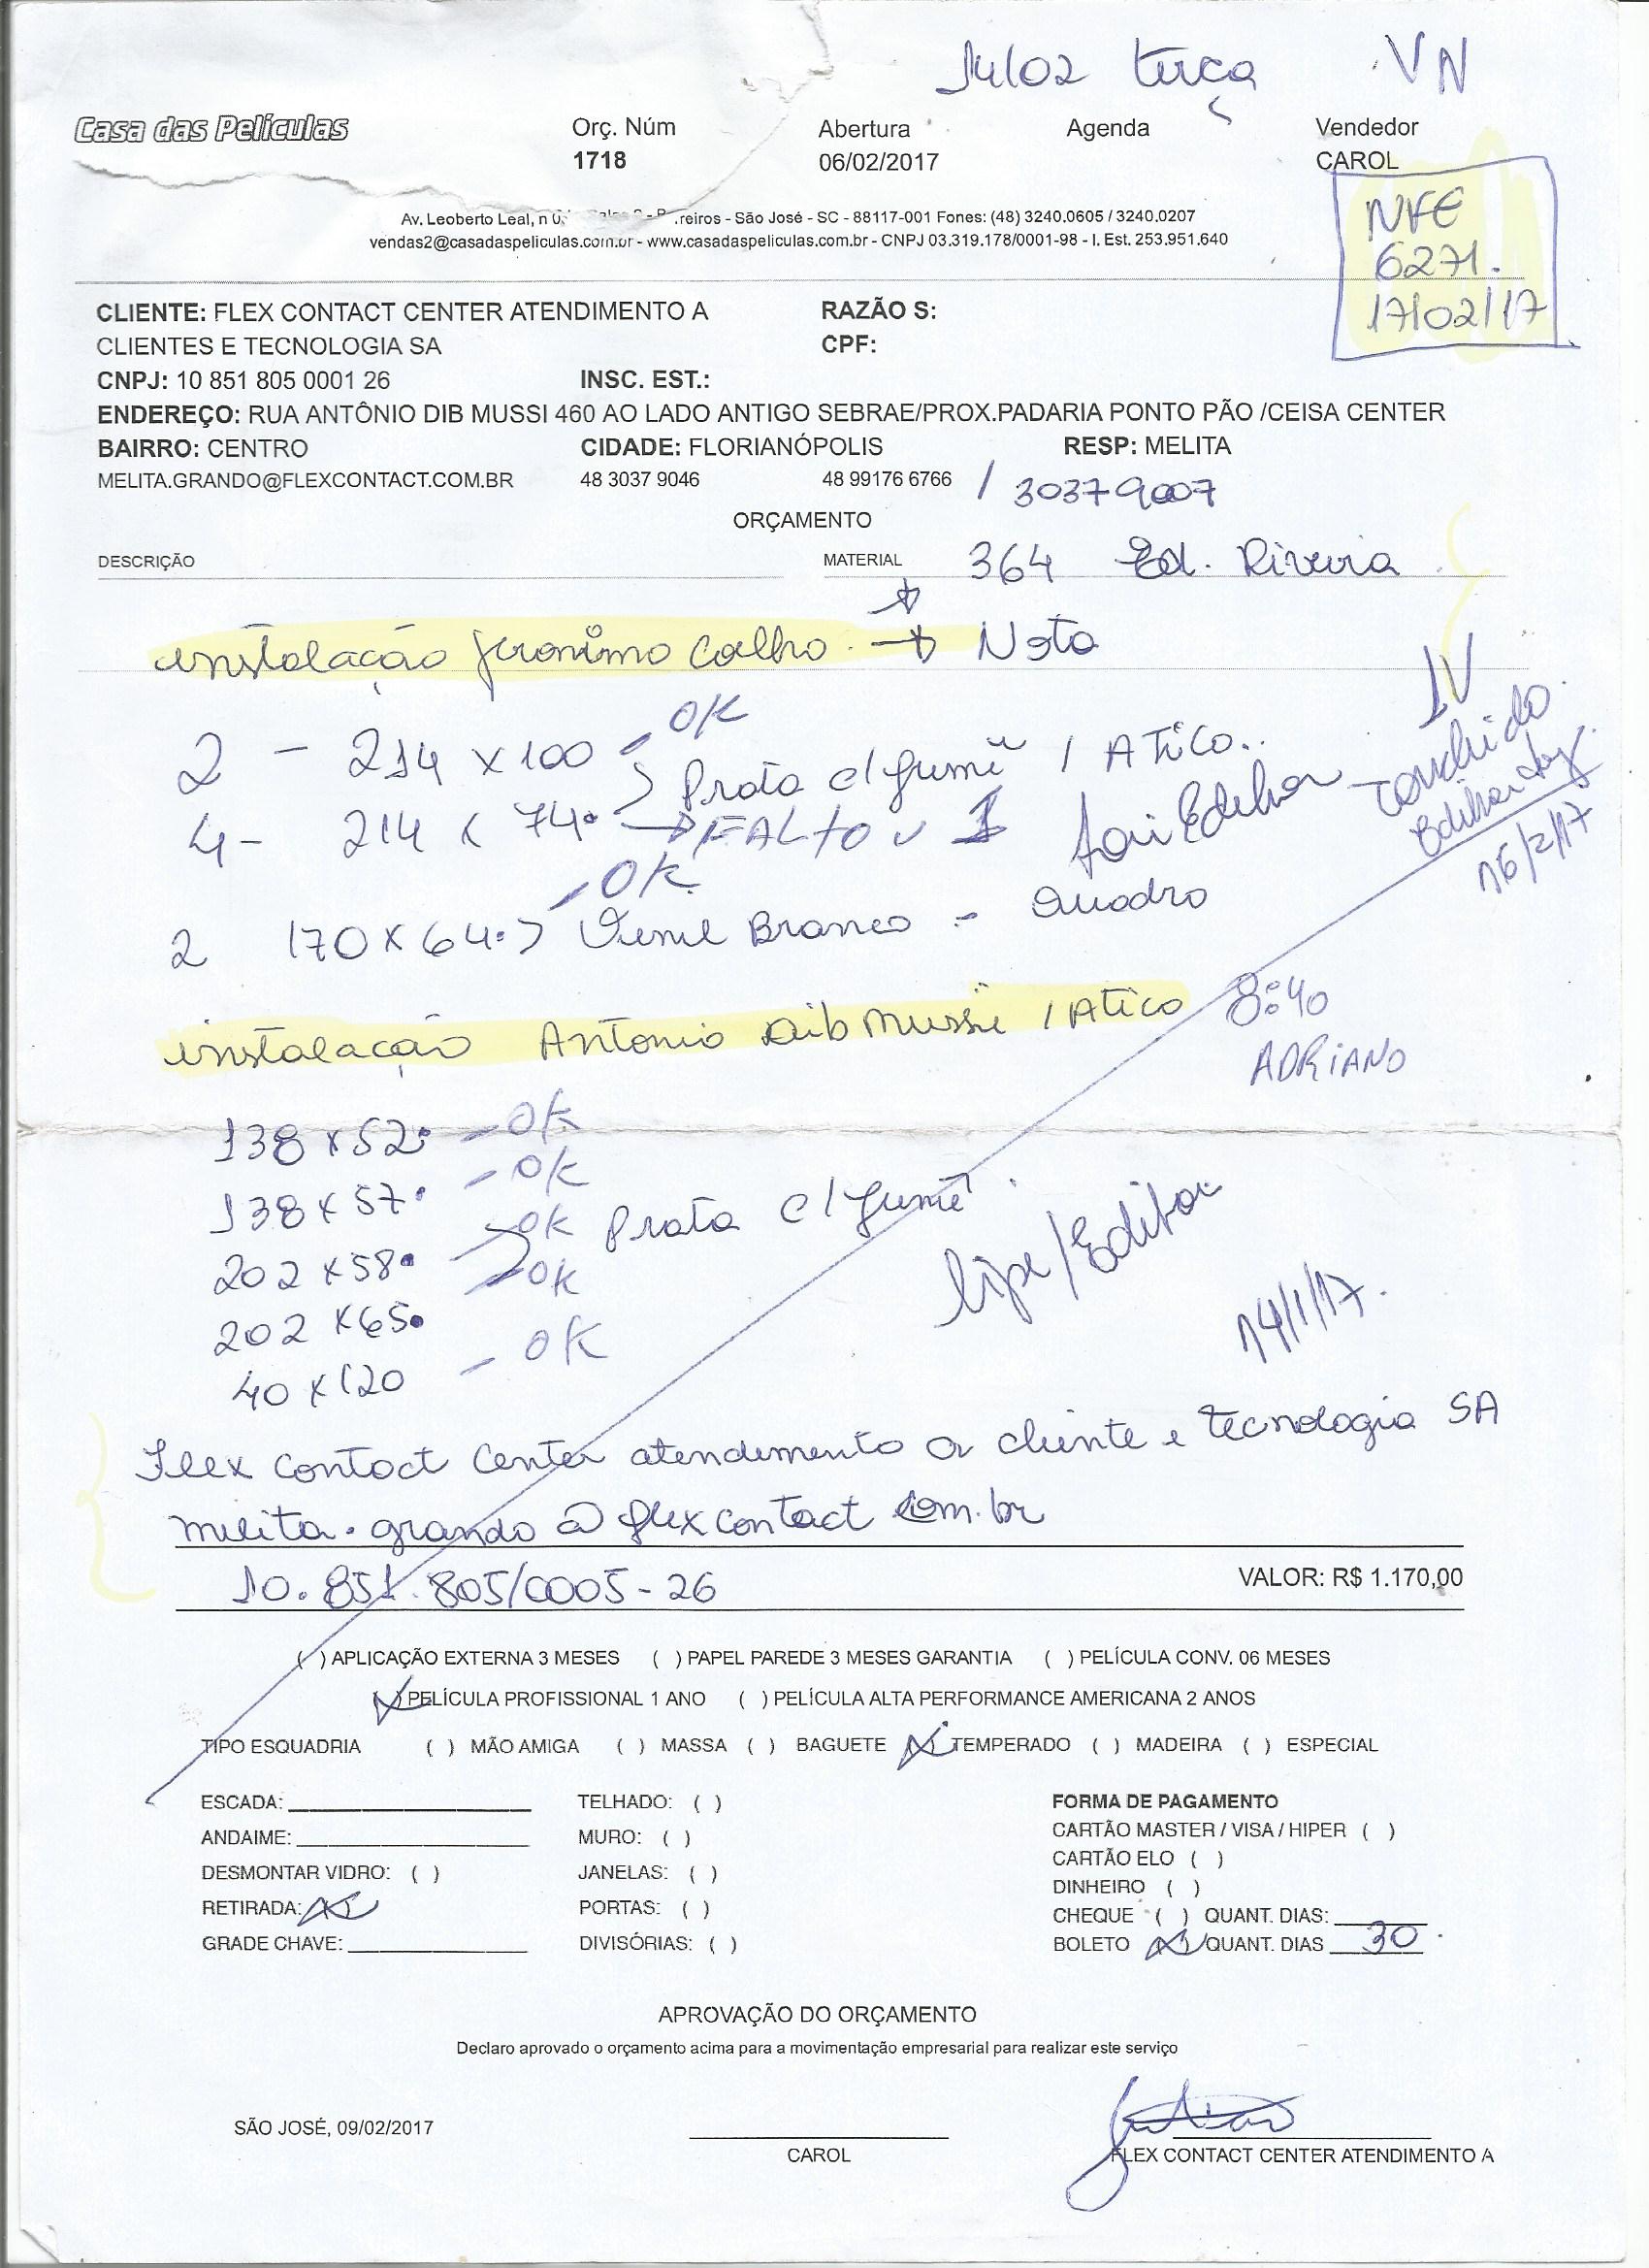 14/02 terça VN
Casa das Películas
Orç. Núm Abertura Agenda Vendedor
1718 06/02/2017 CAROL
NFE
6271.
17/02/17
Av. Leoberto Leal, n - São José - SC - 88117-001 Fones: (48) 3240.0605 / 3240.0207
vendas2@casadaspeliculas.com.br - www.casadaspeliculas.com.br - CNPJ 03.319.178/0001-98 - I. Est. 253.951.640
CLIENTE: FLEX CONTACT CENTER ATENDIMENTO A RAZÃO S:
CLIENTES E TECNOLOGIA SA CPF:
CNPJ: 10 851 805 0001 26 INSC. EST.:
ENDEREÇO: RUA ANTÔNIO DIB MUSSI 460 AO LADO ANTIGO SEBRAE/PROX.PADARIA PONTO PÃO /CEISA CENTER
BAIRRO: CENTRO CIDADE: FLORIANÓPOLIS RESP: MELITA
MELITA.GRANDO@FLEXCONTACT.COM.BR 48 3037 9046 48 99176 6766 / 3037 9007
ORÇAMENTO
DESCRIÇÃO MATERIAL 364 Ed. Riveira
instalação Jeronimo Coelho. → Nota
2 - 214 x 100 - OK
Prata c/ fumê / Atico..
4 - 214 x 74. → FALTOU 1
- OK
2 170 x 64. > Vinil Branco - Quadro
Concluido
16/2/17
instalação Antonio Dib Mussi / Atico 8:40
ADRIANO
138 x 52. - OK
138 x 57. - OK
202 x 58. OK Prata c/ fumê
202 x 65. OK
40 x 120 - OK
14/1/17.
Flex Contact Center atendimento a cliente e tecnologia SA
melita.grando@flexcontact.com.br
10.851.805/0005-26 VALOR: R$ 1.170,00
( ) APLICAÇÃO EXTERNA 3 MESES ( ) PAPEL PAREDE 3 MESES GARANTIA ( ) PELÍCULA CONV. 06 MESES
(X) PELÍCULA PROFISSIONAL 1 ANO ( ) PELÍCULA ALTA PERFORMANCE AMERICANA 2 ANOS
TIPO ESQUADRIA ( ) MÃO AMIGA ( ) MASSA ( ) BAGUETE (X) TEMPERADO ( ) MADEIRA ( ) ESPECIAL
ESCADA: TELHADO: ( ) FORMA DE PAGAMENTO
ANDAIME: MURO: ( ) CARTÃO MASTER / VISA / HIPER ( )
DESMONTAR VIDRO: ( ) JANELAS: ( ) CARTÃO ELO ( )
DINHEIRO ( )
RETIRADA: (X) PORTAS: ( ) CHEQUE ( ) QUANT. DIAS:
GRADE CHAVE: DIVISÓRIAS: ( ) BOLETO (X) QUANT. DIAS 30
APROVAÇÃO DO ORÇAMENTO
Declaro aprovado o orçamento acima para a movimentação empresarial para realizar este serviço
SÃO JOSÉ, 09/02/2017
CAROL FLEX CONTACT CENTER ATENDIMENTO A